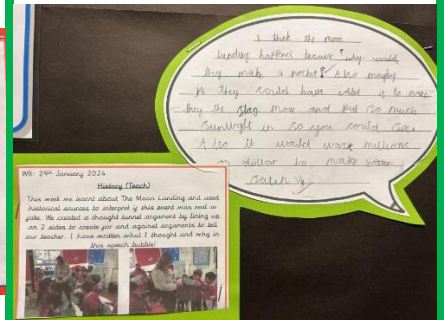 I think the moon
landing happend because why would
they make a rocket? Also maybey
they could have edited it to make
they the flag move and put so much
sunlight in so you could see.
Also it would millions
dollar to make
WB: 29th January 2024
History (Teach)
This week we learnt about The Moon Landing and used
historical sources to interpret if this event was real or
fake. We created a thought tunnel argument by lining up
on 2 sides to create for and against arguments to tell
our teacher. I have written what I thought and why in
this speech bubble!